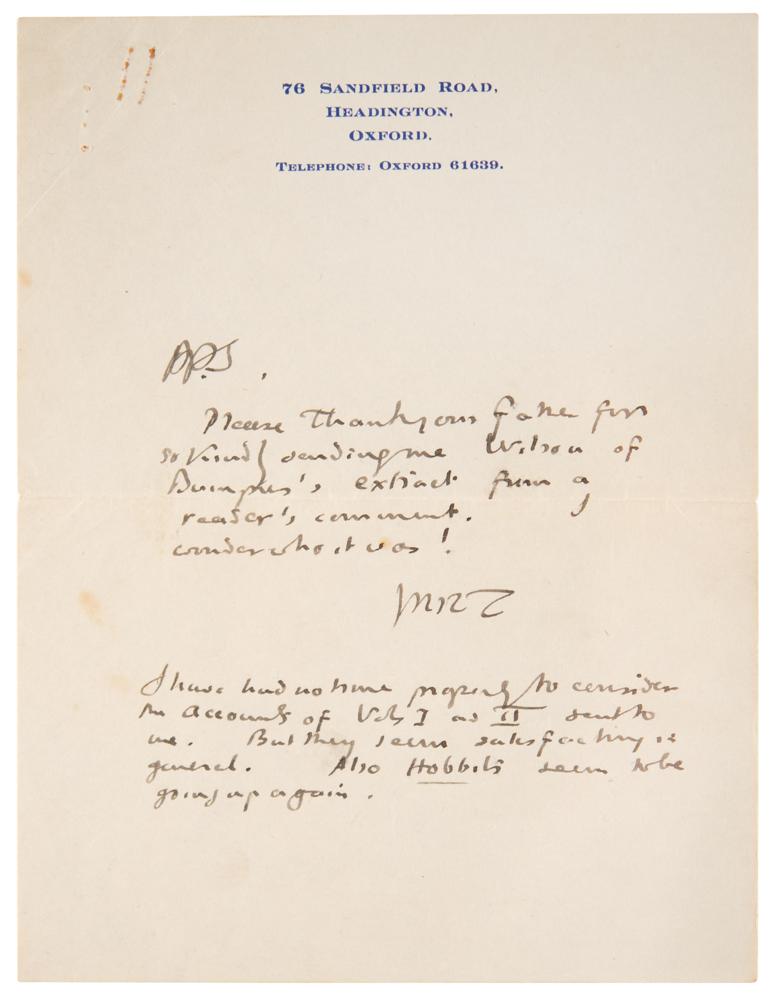 76 SANDFIELD ROAD,
HEADINGTON,
OXFORD.
TELEPHONE: OXFORD 61639.
P.P.S.
Please thank your father for
so kindly sending me Wilson of
Bumpus's extract from a
reader's comment.
wonder who it was!
JRRT
I have had no time properly to consider
the accounts of Vols I and II sent to
me. But they seem satisfactory in
general. Also Hobbits seem to be
going up again.